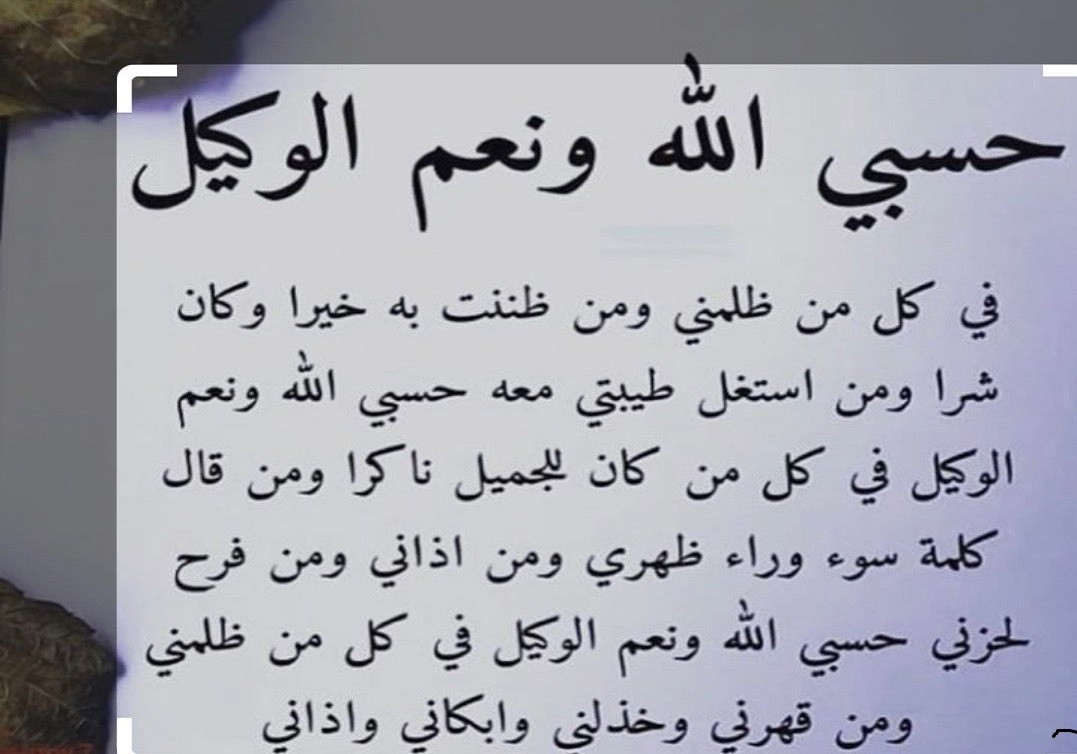 حسبي الله ونعم الوكيل
في كل من ظلمني ومن ظننت به خيرا وكان
شرا ومن استغل طيبتي معه حسبي الله ونعم
الوكيل في كل من كان للجميل ناكرا ومن قال
كلمة سوء وراء ظهري ومن اذاني ومن فرح
لحزني حسبي الله ونعم الوكيل في كل من ظلمني
ومن قهرني وخذلني وابكاني واذاني